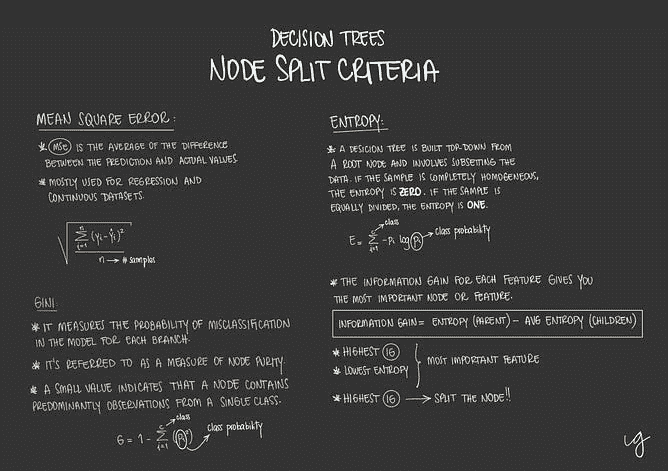 DECISION TREES
NODE SPLIT CRITERIA
MEAN SQUARE ERROR:
* MSE IS THE AVERAGE OF THE DIFFERENCE
BETWEEN THE PREDICTION AND ACTUAL VALUES
* MOSTLY USED FOR REGRESSION AND
CONTINUOUS DATASETS.
√ Σ (yᵢ - ŷᵢ)²
n
i=1
n → # samples
GINI:
* IT MEASURES THE PROBABILITY OF MISCLASSIFICATION
IN THE MODEL FOR EACH BRANCH.
* IT'S REFERRED TO AS A MEASURE OF NODE PURITY.
* A SMALL VALUE INDICATES THAT A NODE CONTAINS
PREDOMINANTLY OBSERVATIONS FROM A SINGLE CLASS.
class
G = 1 - Σ (Pᵢ²) class probability
c
i=1
ENTROPY:
* A DESICION TREE IS BUILT TOP-DOWN FROM
A ROOT NODE AND INVOLVES SUBSETTING THE
DATA. IF THE SAMPLE IS COMPLETELY HOMOGENEOUS,
THE ENTROPY IS ZERO. IF THE SAMPLE IS
EQUALLY DIVIDED, THE ENTROPY IS ONE.
class
E = Σ -Pᵢ log Pᵢ → class probability
c
i=1
* THE INFORMATION GAIN FOR EACH FEATURE GIVES YOU
THE MOST IMPORTANT NODE OR FEATURE.
INFORMATION GAIN = ENTROPY (PARENT) - AVG ENTROPY (CHILDREN)
* HIGHEST IG
* LOWEST ENTROPY
MOST IMPORTANT FEATURE
* HIGHEST IG → SPLIT THE NODE!!